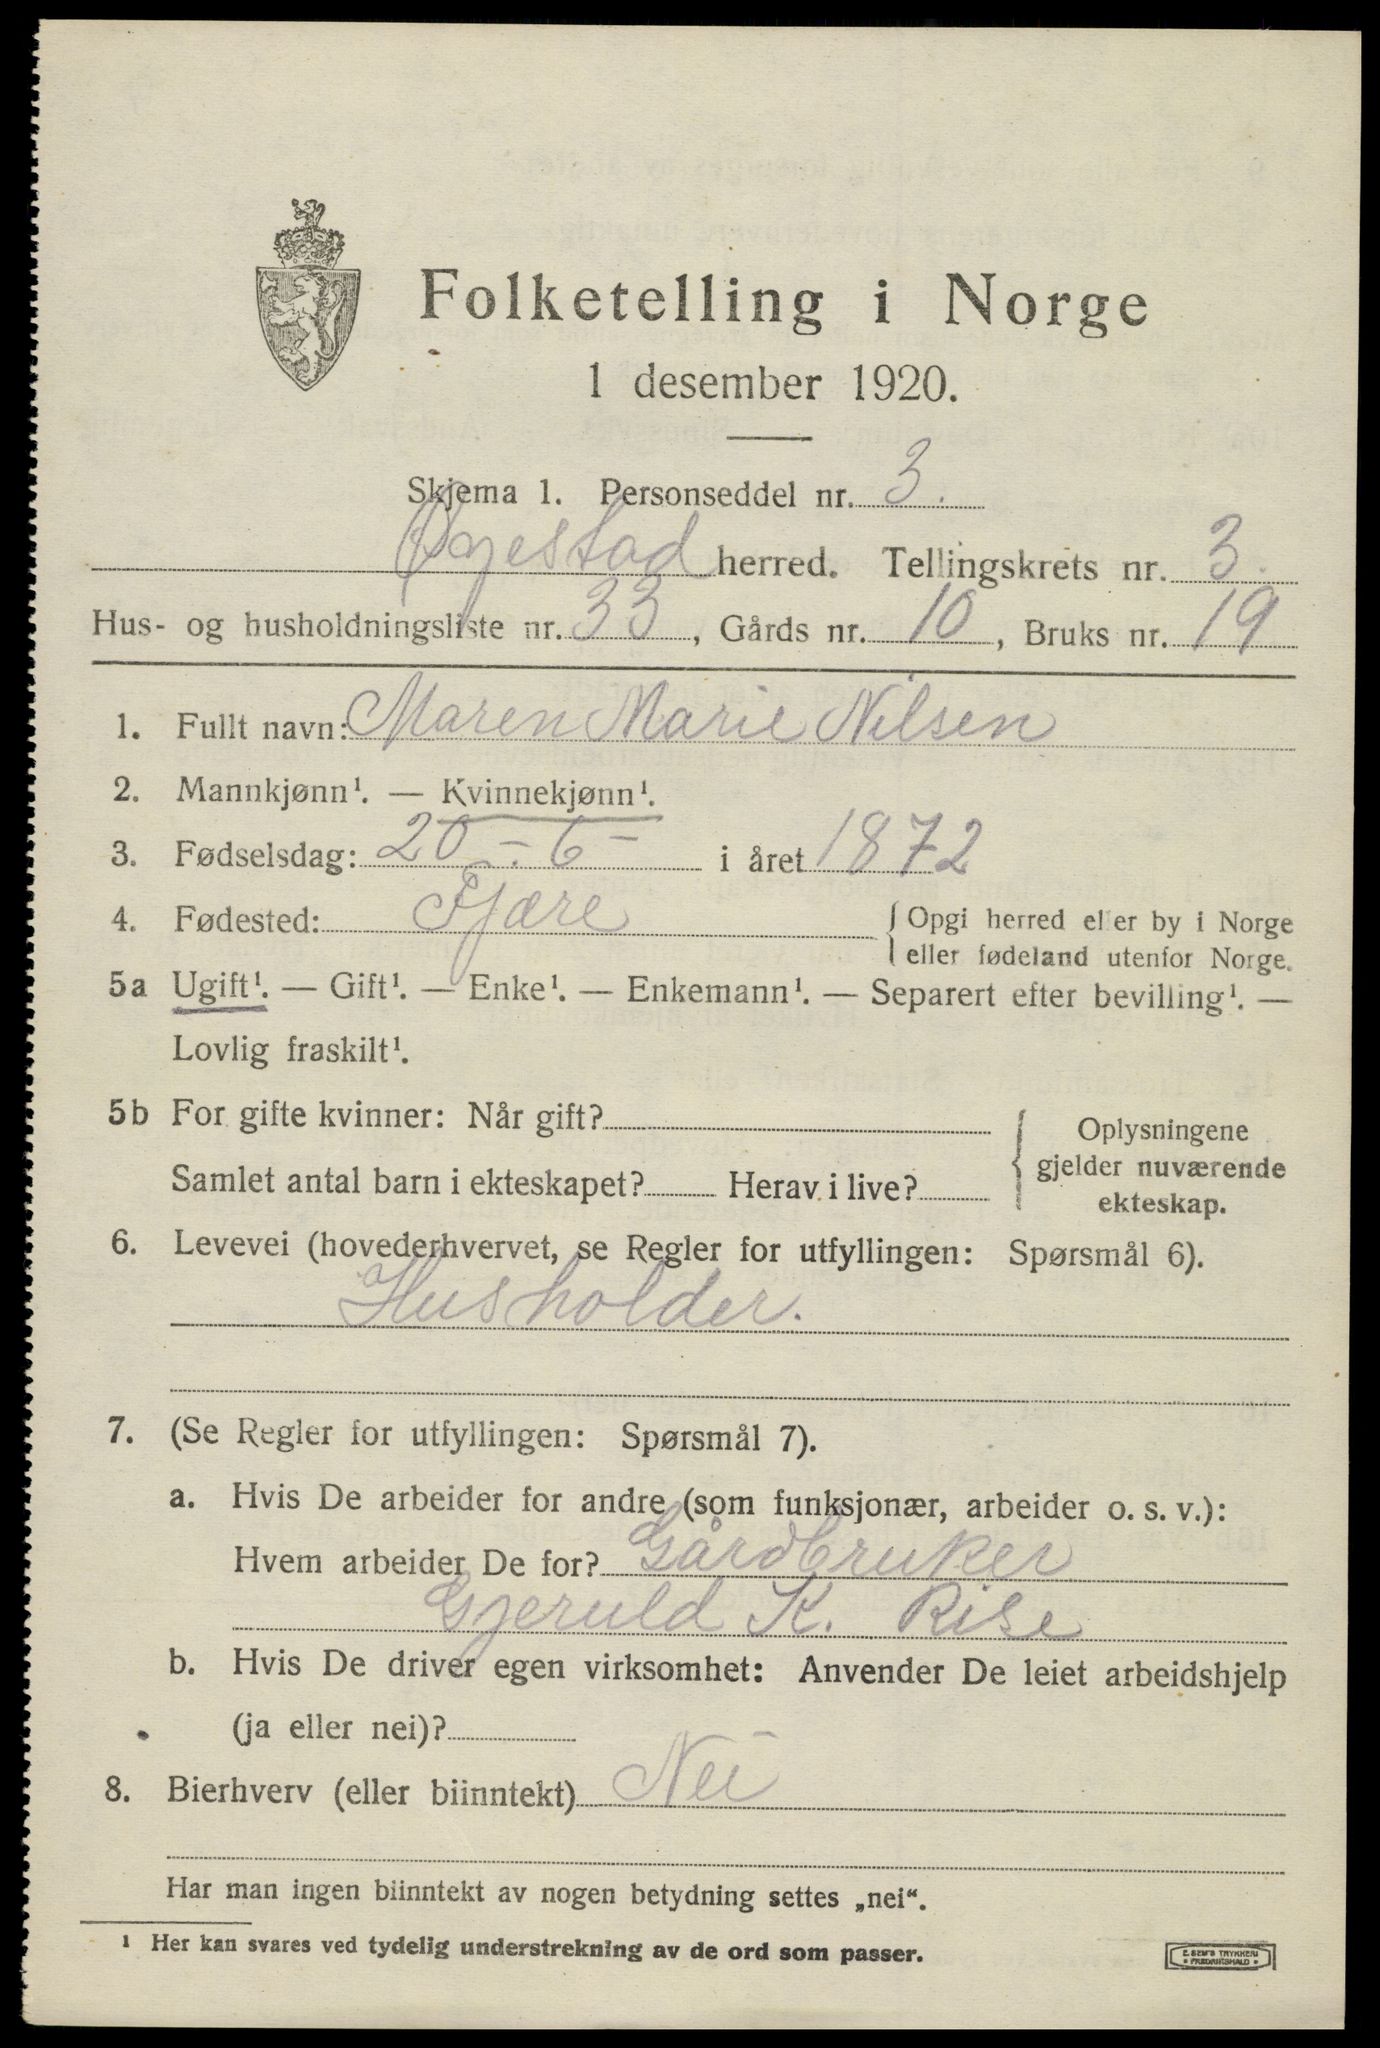 Folketelling i Norge
1 desember 1920.
Skjema 1. Personseddel nr. 3.
Øyestad herred. Tellingskrets nr. 3.
Hus- og husholdningsliste nr. 33, Gårds nr. 10, Bruks nr. 19
1. Fullt navn: Maren Marie Nilsen
2. Mannkjønn¹. — Kvinnekjønn¹.
3. Fødselsdag: 20 - 6 - i året 1872
4. Fødested: Fjære { Opgi herred eller by i Norge
eller fødeland utenfor Norge.
5a Ugift¹. — Gift¹. — Enke¹. — Enkemann¹. — Separert efter bevilling¹. —
Lovlig fraskilt¹.
5b For gifte kvinner: Når gift?
Samlet antal barn i ekteskapet? Herav i live?
{ Oplysningene
gjelder nuværende
ekteskap.
6. Levevei (hovederhvervet, se Regler for utfyllingen: Spørsmål 6).
Husholder.
7. (Se Regler for utfyllingen: Spørsmål 7).
a. Hvis De arbeider for andre (som funksjonær, arbeider o. s. v.):
Hvem arbeider De for? Gårdbruker
Gjeruld K. Rise
b. Hvis De driver egen virksomhet: Anvender De leiet arbeidshjelp
(ja eller nei)?
8. Bierhverv (eller biinntekt) Nei
Har man ingen biinntekt av nogen betydning settes „nei“.
¹ Her kan svares ved tydelig understrekning av de ord som passer.
E. SEM'S TRYKKERI
• FREDRIKSHALD •